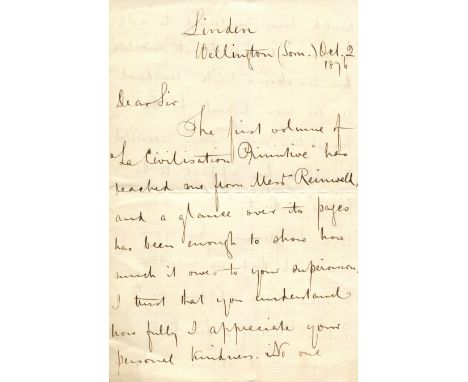 Linden
Wellington (Som.) Oct. 2
1876
Dear Sir
The first volume of
"La Civilisation Primitive" has
reached me from Messrs Reinwald,
and a glance over its pages
has been enough to show how
much it owes to your supervision.
I trust that you understand
how fully I appreciate your
personal kindness. No one